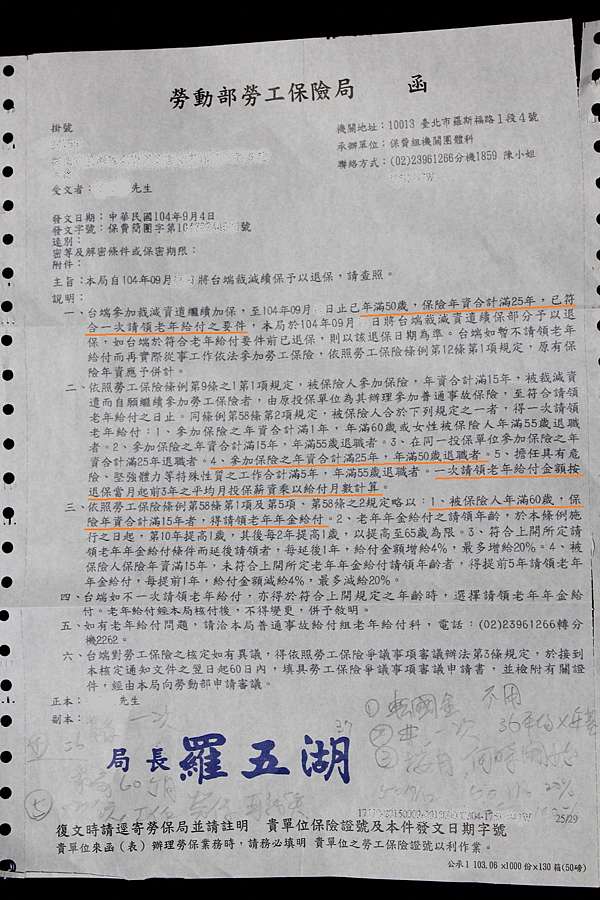 勞動部勞工保險局 函
掛號
機關地址：10013 臺北市羅斯福路1段4號
承辦單位：保費組機關團體科
聯絡方式：(02)23961266分機1859 陳小姐
受文者： 先生
發文日期：中華民國104年9月4日
發文字號：保費簡團字第10 號
速別：
密等及解密條件或保密期限：
附件：
主旨：本局自104年09月 日將台端裁減續保予以退保，請查照。
說明：
一、台端參加裁減資遣繼續加保，至104年09月 日止已年滿50歲，保險年資合計滿25年，已符
合一次請領老年給付之要件，本局於104年09月 日將台端裁減資遣續保部分予以退
保，如台端於符合老年給付要件前已退保，則以該退保日期為準。台端如暫不請領老年
給付而再實際從事工作依法參加勞工保險，依勞工保險條例第12條第1項規定，原有保
險年資應予併計。
二、依照勞工保險條例第9條之1第1項規定，被保險人參加保險，年資合計滿15年，被裁減資
遣而自願繼續參加勞工保險者，由原投保單位為其辦理參加普通事故保險，至符合請領
老年給付之日止。同條例第58條第2項規定，被保險人合於下列規定之一者，得一次請領
老年給付：1、參加保險之年資合計滿1年，年滿60歲或女性被保險人年滿55歲退職
者。2、參加保險之年資合計滿15年，年滿55歲退職者。3、在同一投保單位參加保險之年
資合計滿25年退職者。4、參加保險之年資合計滿25年，年滿50歲退職者。5、擔任具有危
險、堅強體力等特殊性質之工作合計滿5年，年滿55歲退職者。一次請領老年給付金額按
退保當月起前3年之平均月投保薪資乘以給付月數計算。
三、依照勞工保險條例第58條第1項及第5項、第58條之2規定略以：1、被保險人年滿60歲，保
險年資合計滿15年者，得請領老年年金給付。2、老年年金給付之請領年齡，於本條例施
行之日起，第10年提高1歲，其後每2年提高1歲，以提高至65歲為限。3、符合上開所定請
領老年年金給付條件而延後請領者，每延後1年，給付金額增給4%，最多增給20%。4、被
保險人保險年資滿15年，未符合上開所定老年年金給付請領年齡者，得提前5年請領老年
年金給付，每提前1年，給付金額減給4%，最多減給20%。
四、台端如不一次請領老年給付，亦得於符合上開規定之年齡時，選擇請領老年年金給
付。老年給付經本局核付後，不得變更，併予敘明。
五、如有老年給付問題，請洽本局普通事故給付組老年給付科，電話：(02)23961266轉分
機2262。
六、台端對勞工保險之核定如有異議，得依照勞工保險爭議事項審議辦法第3條規定，於接到
本核定通知文件之翌日起60日內，填具勞工保險爭議事項審議申請書，並檢附有關證
件，經由本局向勞動部申請審議。
正本： 先生
副本：
局長 羅五湖
25/29
復文時請逕寄勞保局並請註明 貴單位保險證號及本件發文日期字號
貴單位來函（表）辦理勞保業務時，請務必填明 貴單位之勞工保險證號以利作業。
公承1 103.06 x1000 份x130 箱(50磅)